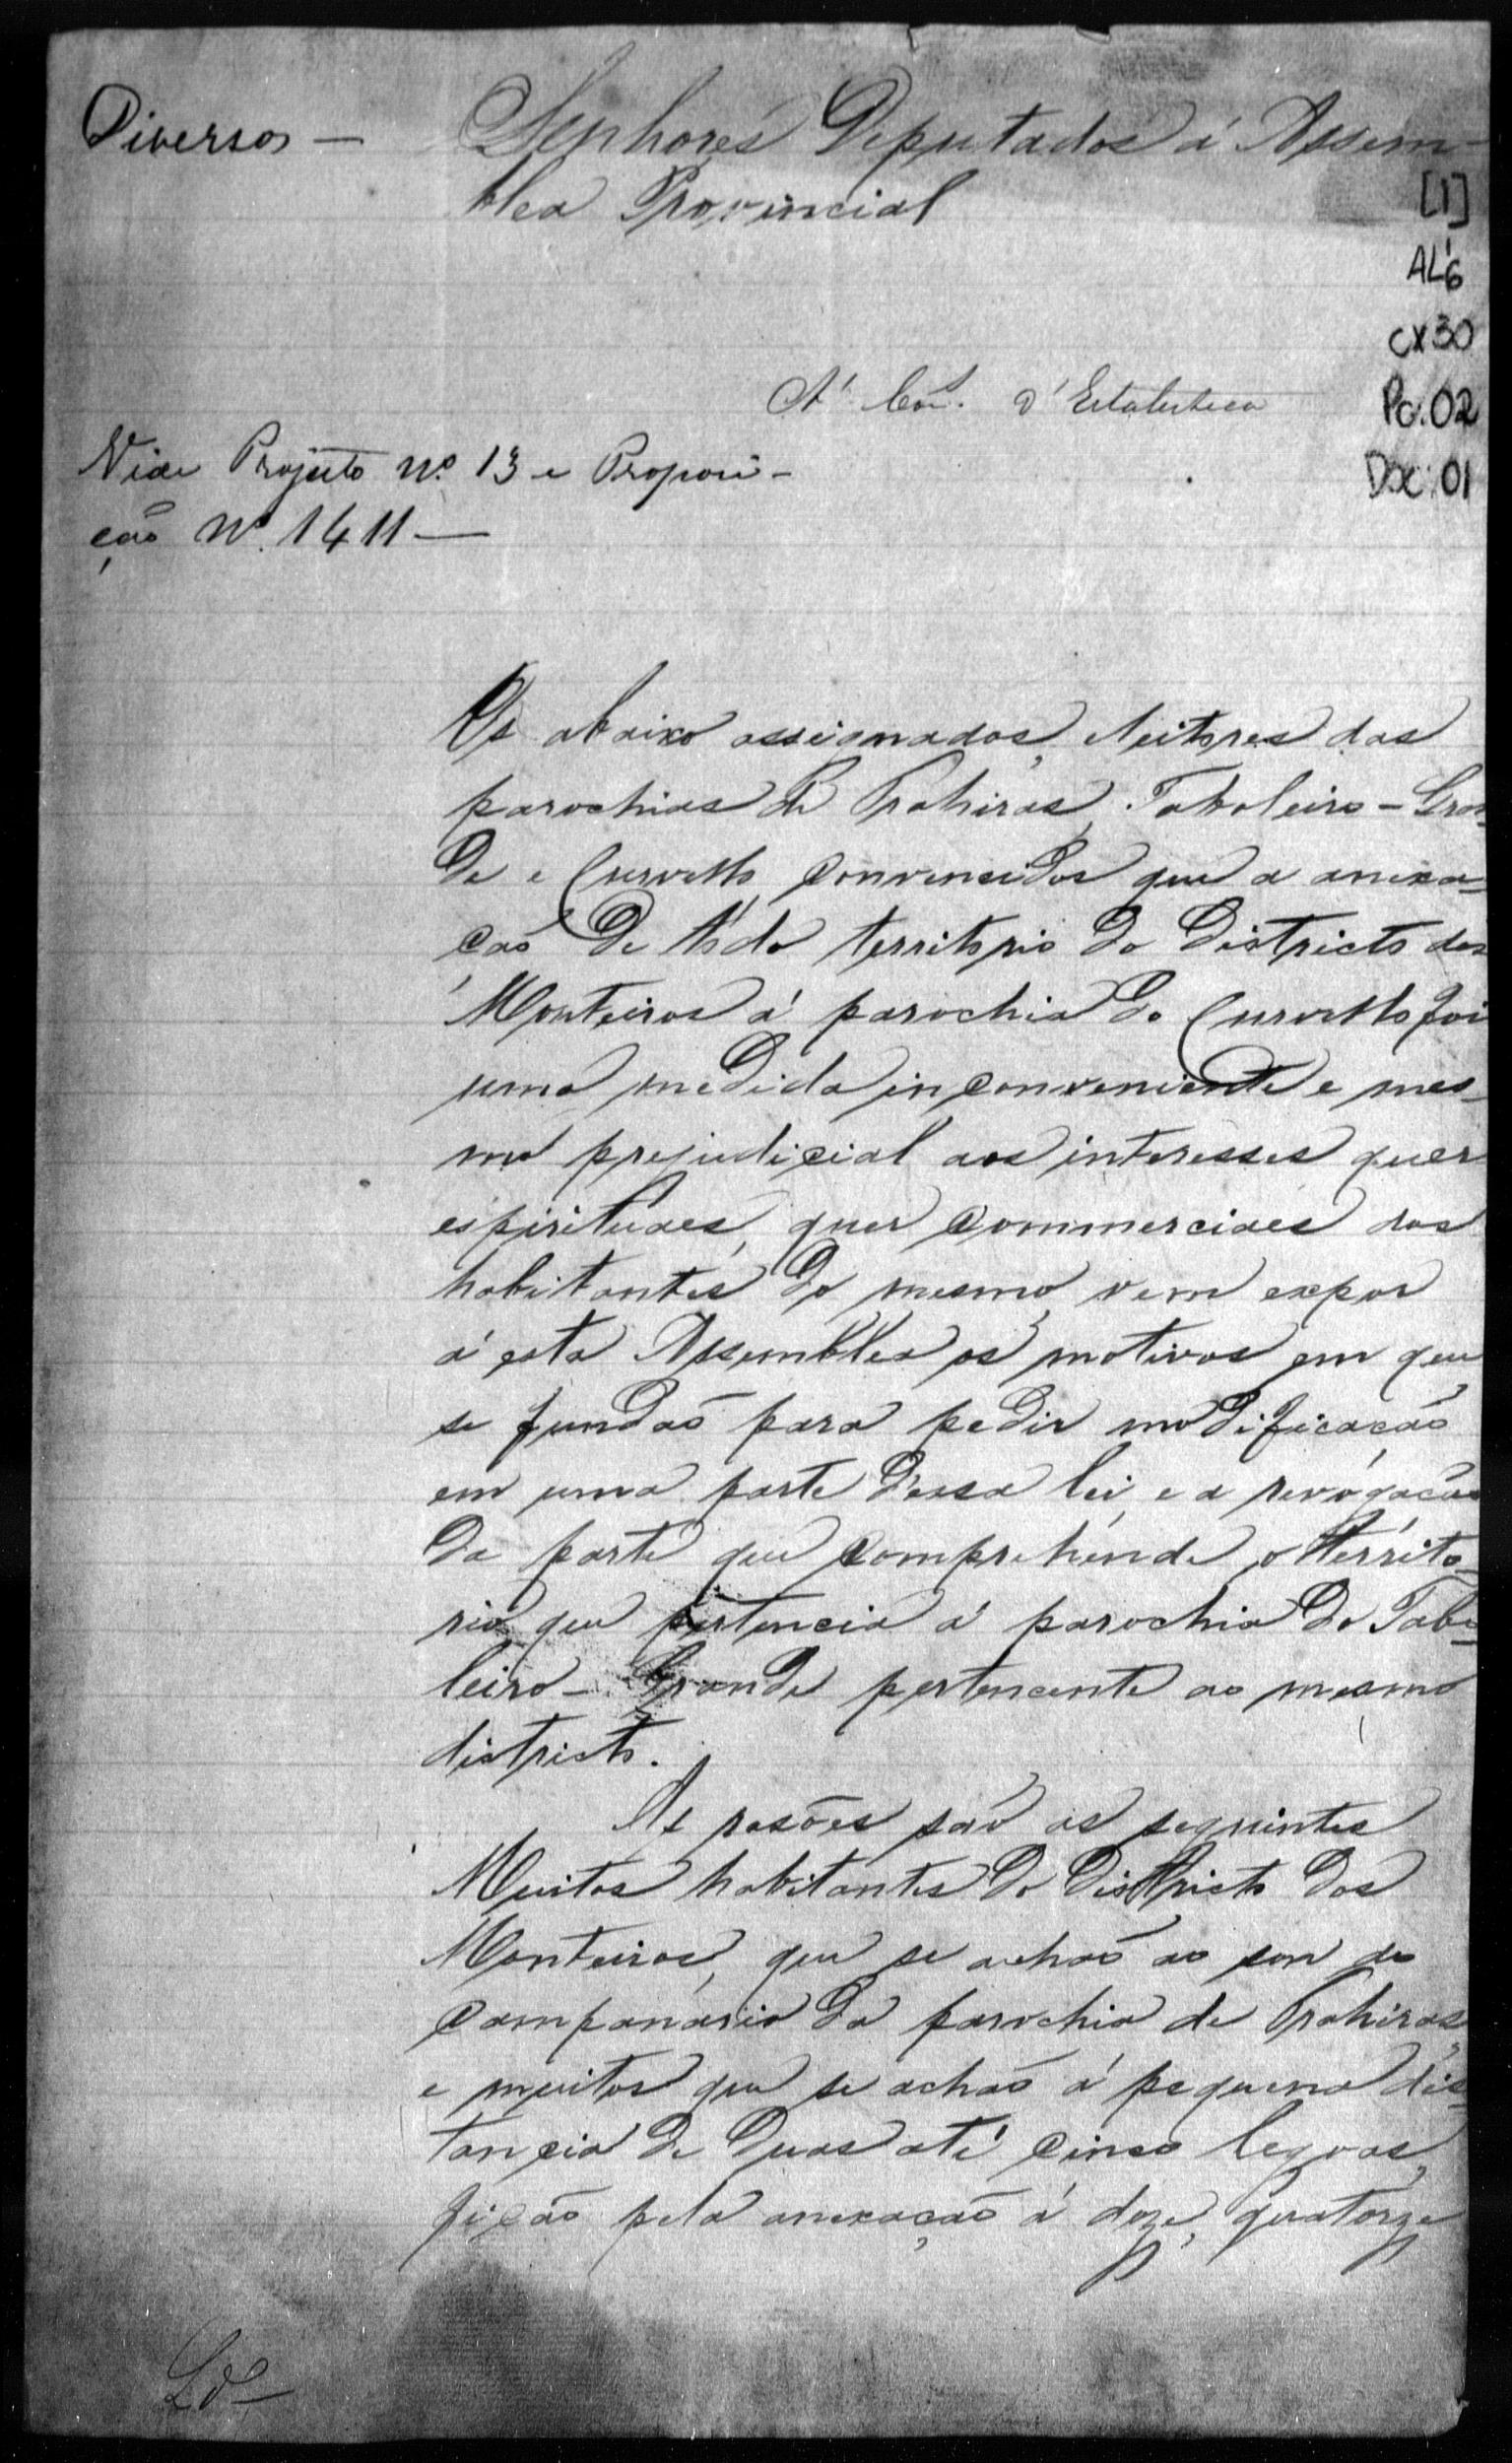 Diversos —
Senhores Deputados á Assem-
blea Provincial
[1]
AL'6
CX30
Pc.02
Doc:01
A' Com. d'Estatistica
Vide Projecto Nº. 13 e Proposi-
ção Nº. 1411 —
Os abaixo assignados, eleitores das
parochias de Trahiras, Taboleiro-Gran-
de e Curvello, convencidos que a anexa-
ção de tôdo territorio do Districto dos
Monteiros á parochia do Curvello foi
uma medida inconveniente e mes-
mo prejudicial aos interesses quer
espirituaes, quer commerciaes dos
habitantes do mesmo, vem expor
á esta Assemblea os motivos em que
se fundão para pedir modificação
em uma parte dessa lei e a revogação
da parte que comprehende o territo-
rio que pertencia á parochia do Tabo-
leiro-Grande pertencente ao mesmo
districto.
As rasões são as seguintes
Muitos habitantes do Districto dos
Monteiros, que se achão ao som do
campanario da parochia de Trahiras,
e muitos que se achão á pequena dis-
tancia de duas até cinco legoas,
ficão pela anexação á doze, quatorze